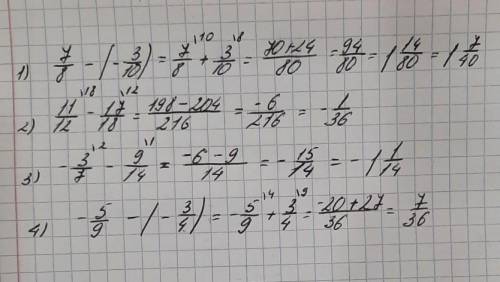 1) 7/8 - (-3/10) = 7/8\10 + 3/10\8 = 70+24/80 = 94/80 = 1 14/80 = 1 7/40
2) 11/12\18 - 17/18\12 = 198-204/216 = -6/216 = -1/36
3) -3/7\2 - 9/14\1 = -6-9/14 = -15/14 = -1 1/14
4) -5/9 - (-3/4) = -5/9\4 + 3/4\9 = -20+27/36 = 7/36